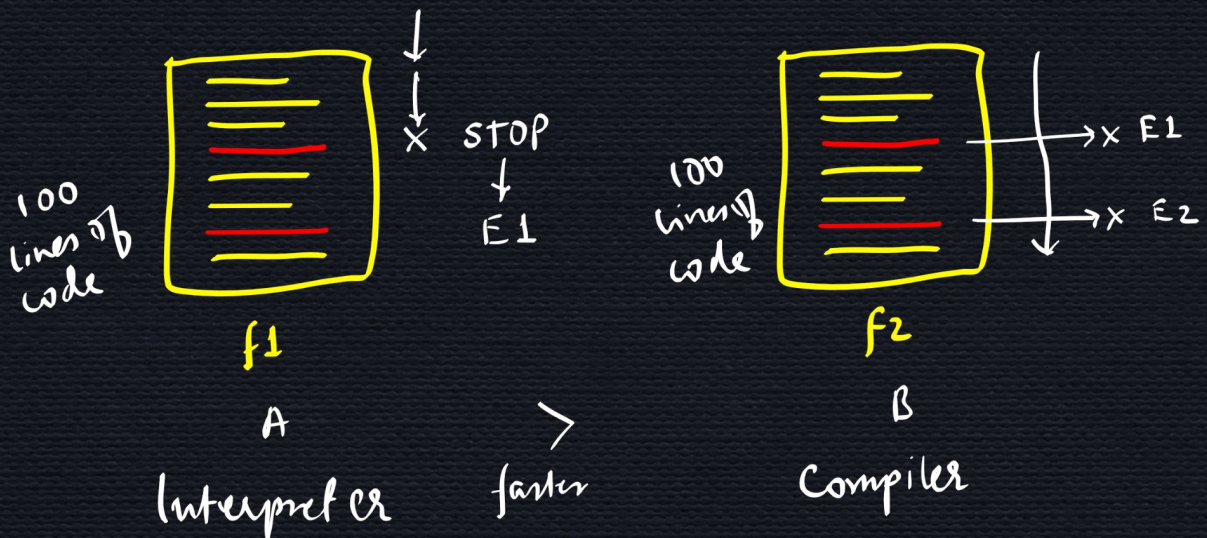 100
lines of
code
X STOP
E1
f1
A
Interpreter
>
faster
100
lines of
code
X E1
X E2
f2
B
Compiler